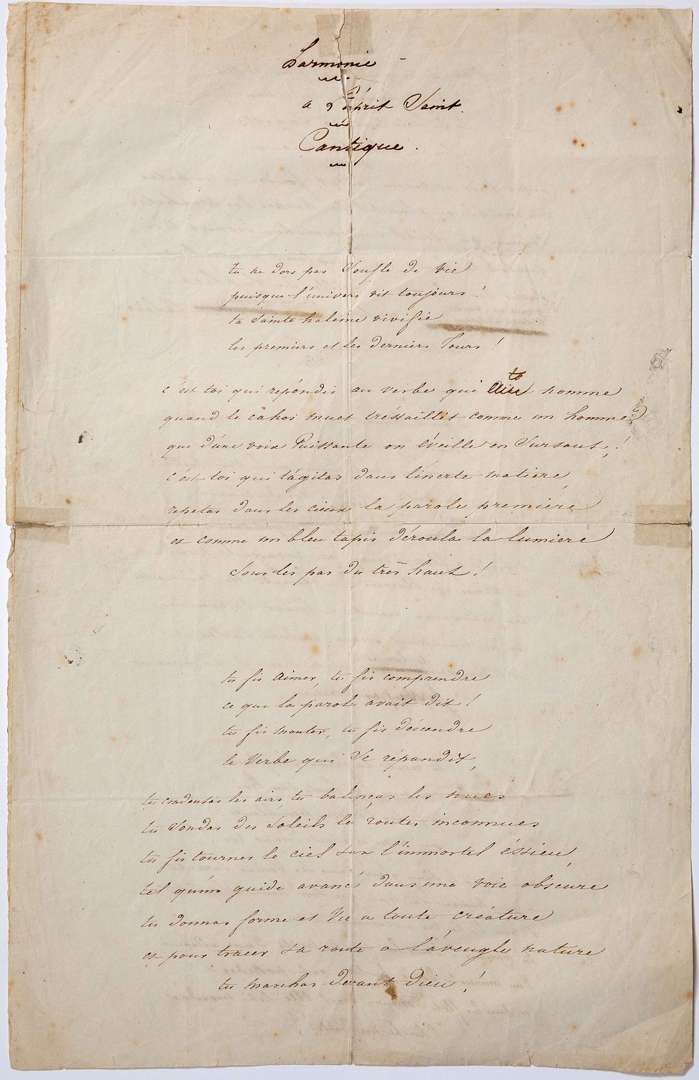 harmonie
a l'ésprit Saint
Cantique.
tu ne dors pas Soufle de vie
puisque l'univers vit toujours!
ta Sainte haleine vivifie
les premiers et les derniers Jours!
c'est toi qui répondis au verbe qui te nomme
quand le câhos muet tréssaillit comme un homme
que d'une voix Puissante on éveille en Sursaut,!
c'est toi qui t'agitas dans linerte matiere
répetas dans les cieux la parole première
et comme un bleu tapis déroula la lumiere
Sous les pas du très haut!
tu fis aimer, tu fis comprendre
ce que la parole avait dit!
tu fis monter, tu fis décendre
le Verbe qui Se répandit,
tu condensas les airs tu balanças les nues
tu Sondas des Soleils le routes inconnues
tu fis tourner le ciel sur l'immortel éssieu,
tel qu'un guide avancé dans une voie obscure
tu donnas forme et Vie a toute créature
et pour tracer sa route a l'aveugle nature
tu marchas devant Dieu!